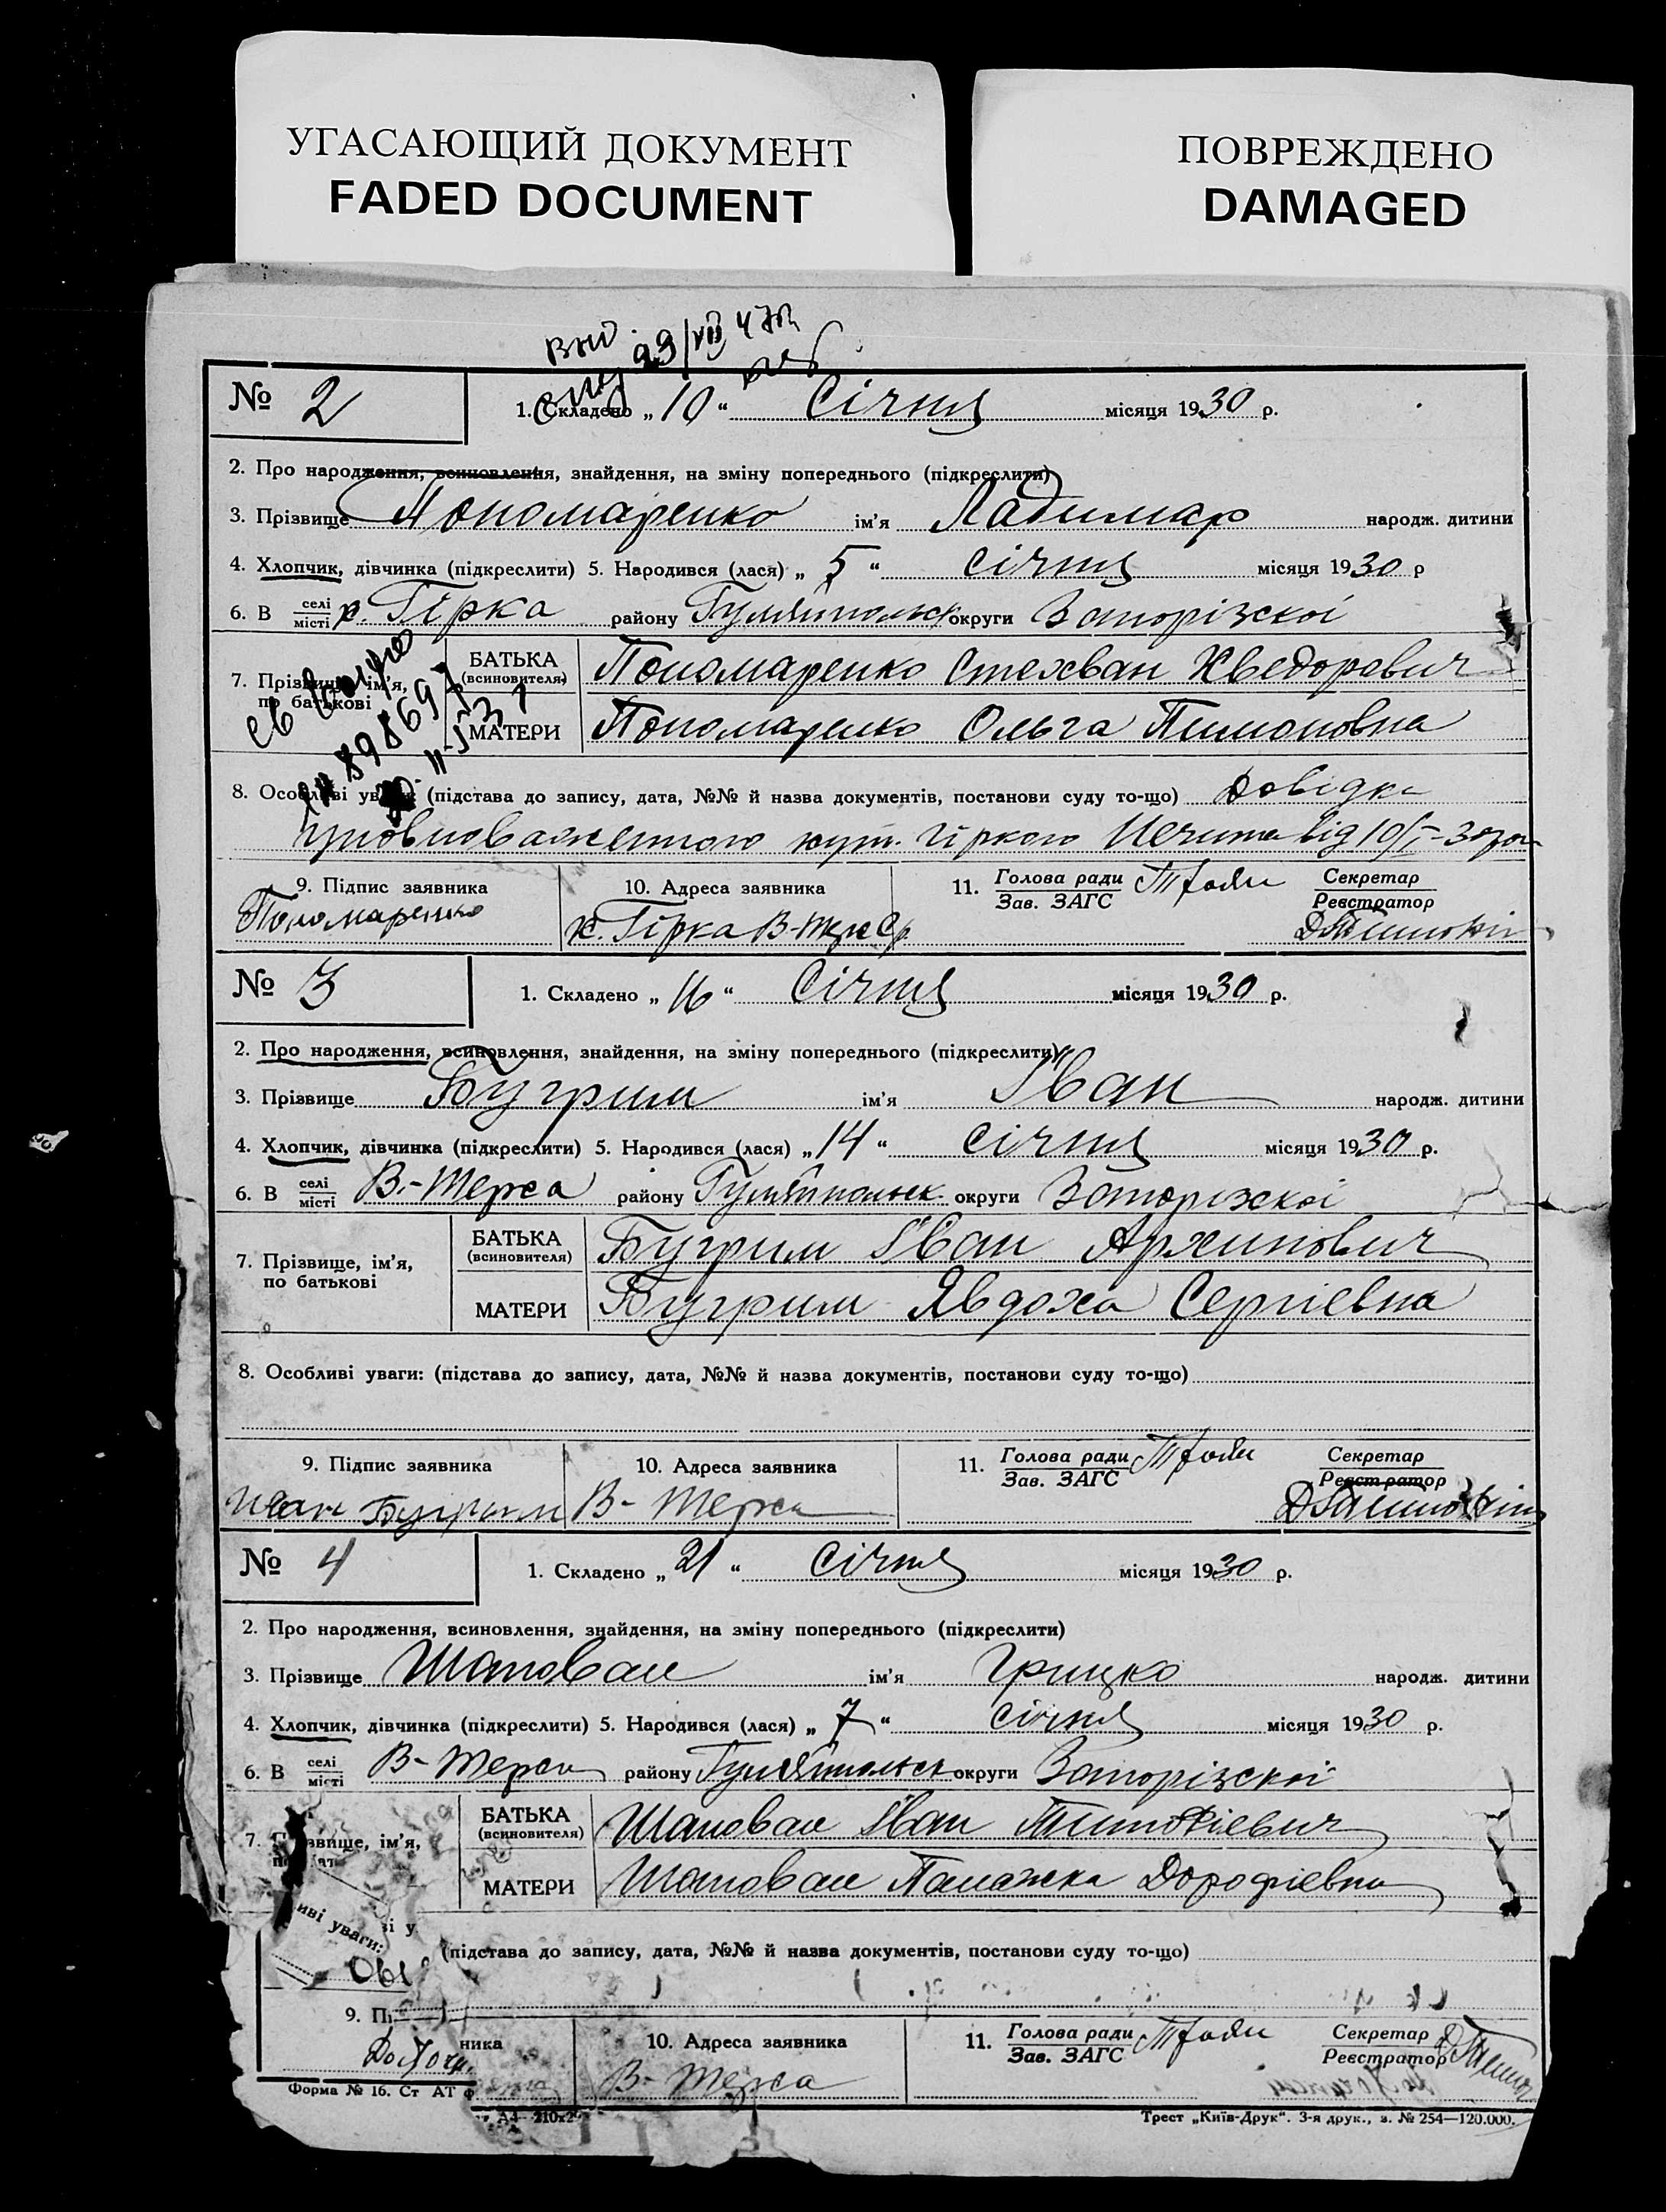 УГАСАЮЩИЙ ДОКУМЕНТ
FADED DOCUMENT
ПОВРЕЖДЕНО
DAMAGED
29/VII 47р
№ 2
1. Складено „ 10 “ Січня місяця 1930 р.
2. Про народження, всиновлення, знайдення, на зміну попереднього (підкреслити)
3. Прізвище Пономаренко ім'я Ладимар народж. дитини
4. Хлопчик, дівчинка (підкреслити) 5. Народився (лася) „ 5 “ січня місяця 1930 р
6. В селі/місті х. Гірка району Гуляйпольск округи Запорізскої
7. Прізвище, ім'я, по батькові
БАТЬКА (всиновителя) Пономаренко Стехван Хведорович
МАТЕРИ Пономаренко Ольга Пимоновна
8. Особливі уваги: (підстава до запису, дата, №№ й назва документів, постанови суду то-що) Довідка
уповноваженного хут. Гіркого від 10/I-30 р
9. Підпис заявника
Пономаренко
10. Адреса заявника
х. Гірка В-Терс
11. Голова ради/Зав. ЗАГС
Секретар/Реєстратор
№ 3
1. Складено „ 16 “ Січня місяця 1930 р.
2. Про народження, всиновлення, знайдення, на зміну попереднього (підкреслити)
3. Прізвище Бугрим ім'я Іван народж. дитини
4. Хлопчик, дівчинка (підкреслити) 5. Народився (лася) „ 14 “ січня місяця 1930 р.
6. В селі/місті В.-Терса району Гуляйпольск округи Запорізскої
7. Прізвище, ім'я, по батькові
БАТЬКА (всиновителя) Бугрим Іван Архипович
МАТЕРИ Бугрим Явдоха Сергієвна
8. Особливі уваги: (підстава до запису, дата, №№ й назва документів, постанови суду то-що)
9. Підпис заявника
Иван Бугрим
10. Адреса заявника
В-Терса
11. Голова ради/Зав. ЗАГС
Секретар/Реєстратор
№ 4
1. Складено „ 21 “ Січня місяця 1930 р.
2. Про народження, всиновлення, знайдення, на зміну попереднього (підкреслити)
3. Прізвище Шаповал ім'я Грицко народж. дитини
4. Хлопчик, дівчинка (підкреслити) 5. Народився (лася) „ 7 “ січня місяця 1930 р.
6. В селі/місті В-Терса району Гуляйпольск округи Запорізскої
7. ім'я,
БАТЬКА (всиновителя) Шаповал Іван Тимохієвич
МАТЕРИ Шаповал Палажка Дорофієвна
уваги: (підстава до запису, дата, №№ й назва документів, постанови суду то-що)
9.
10. Адреса заявника
В-Терса
11. Голова ради/Зав. ЗАГС
Секретар/Реєстратор
Форма № 16. Ст АТ
Трест „Київ-Друк“. 3-я друк., з. № 254—120.000.